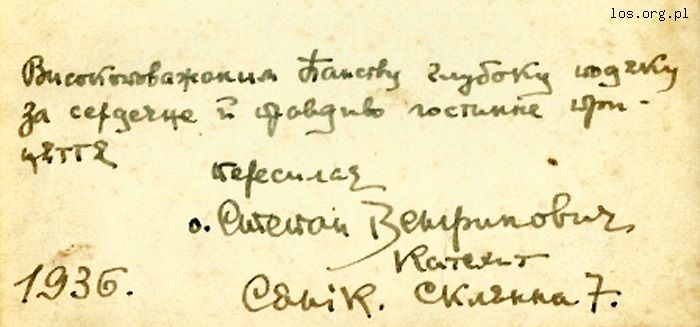 los.org.pl
Високоповажаним Панству глубоку подяку
за сердечне й правдиво гостинне при-
цяттє
пересилає
о. Степан Венгринович
Катехит
1936. Сянік. Склянна 7.